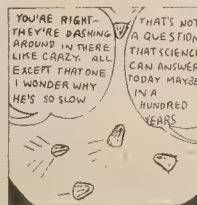 YOU'RE RIGHT—
THEY'RE DASHING
AROUND IN THERE
LIKE CRAZY. ALL
EXCEPT THAT ONE
I WONDER WHY
HE'S SO SLOW
THAT'S NOT
A QUESTION
THAT SCIENCE
CAN ANSWER
TODAY MAYBE
IN A
HUNDRED
YEARS